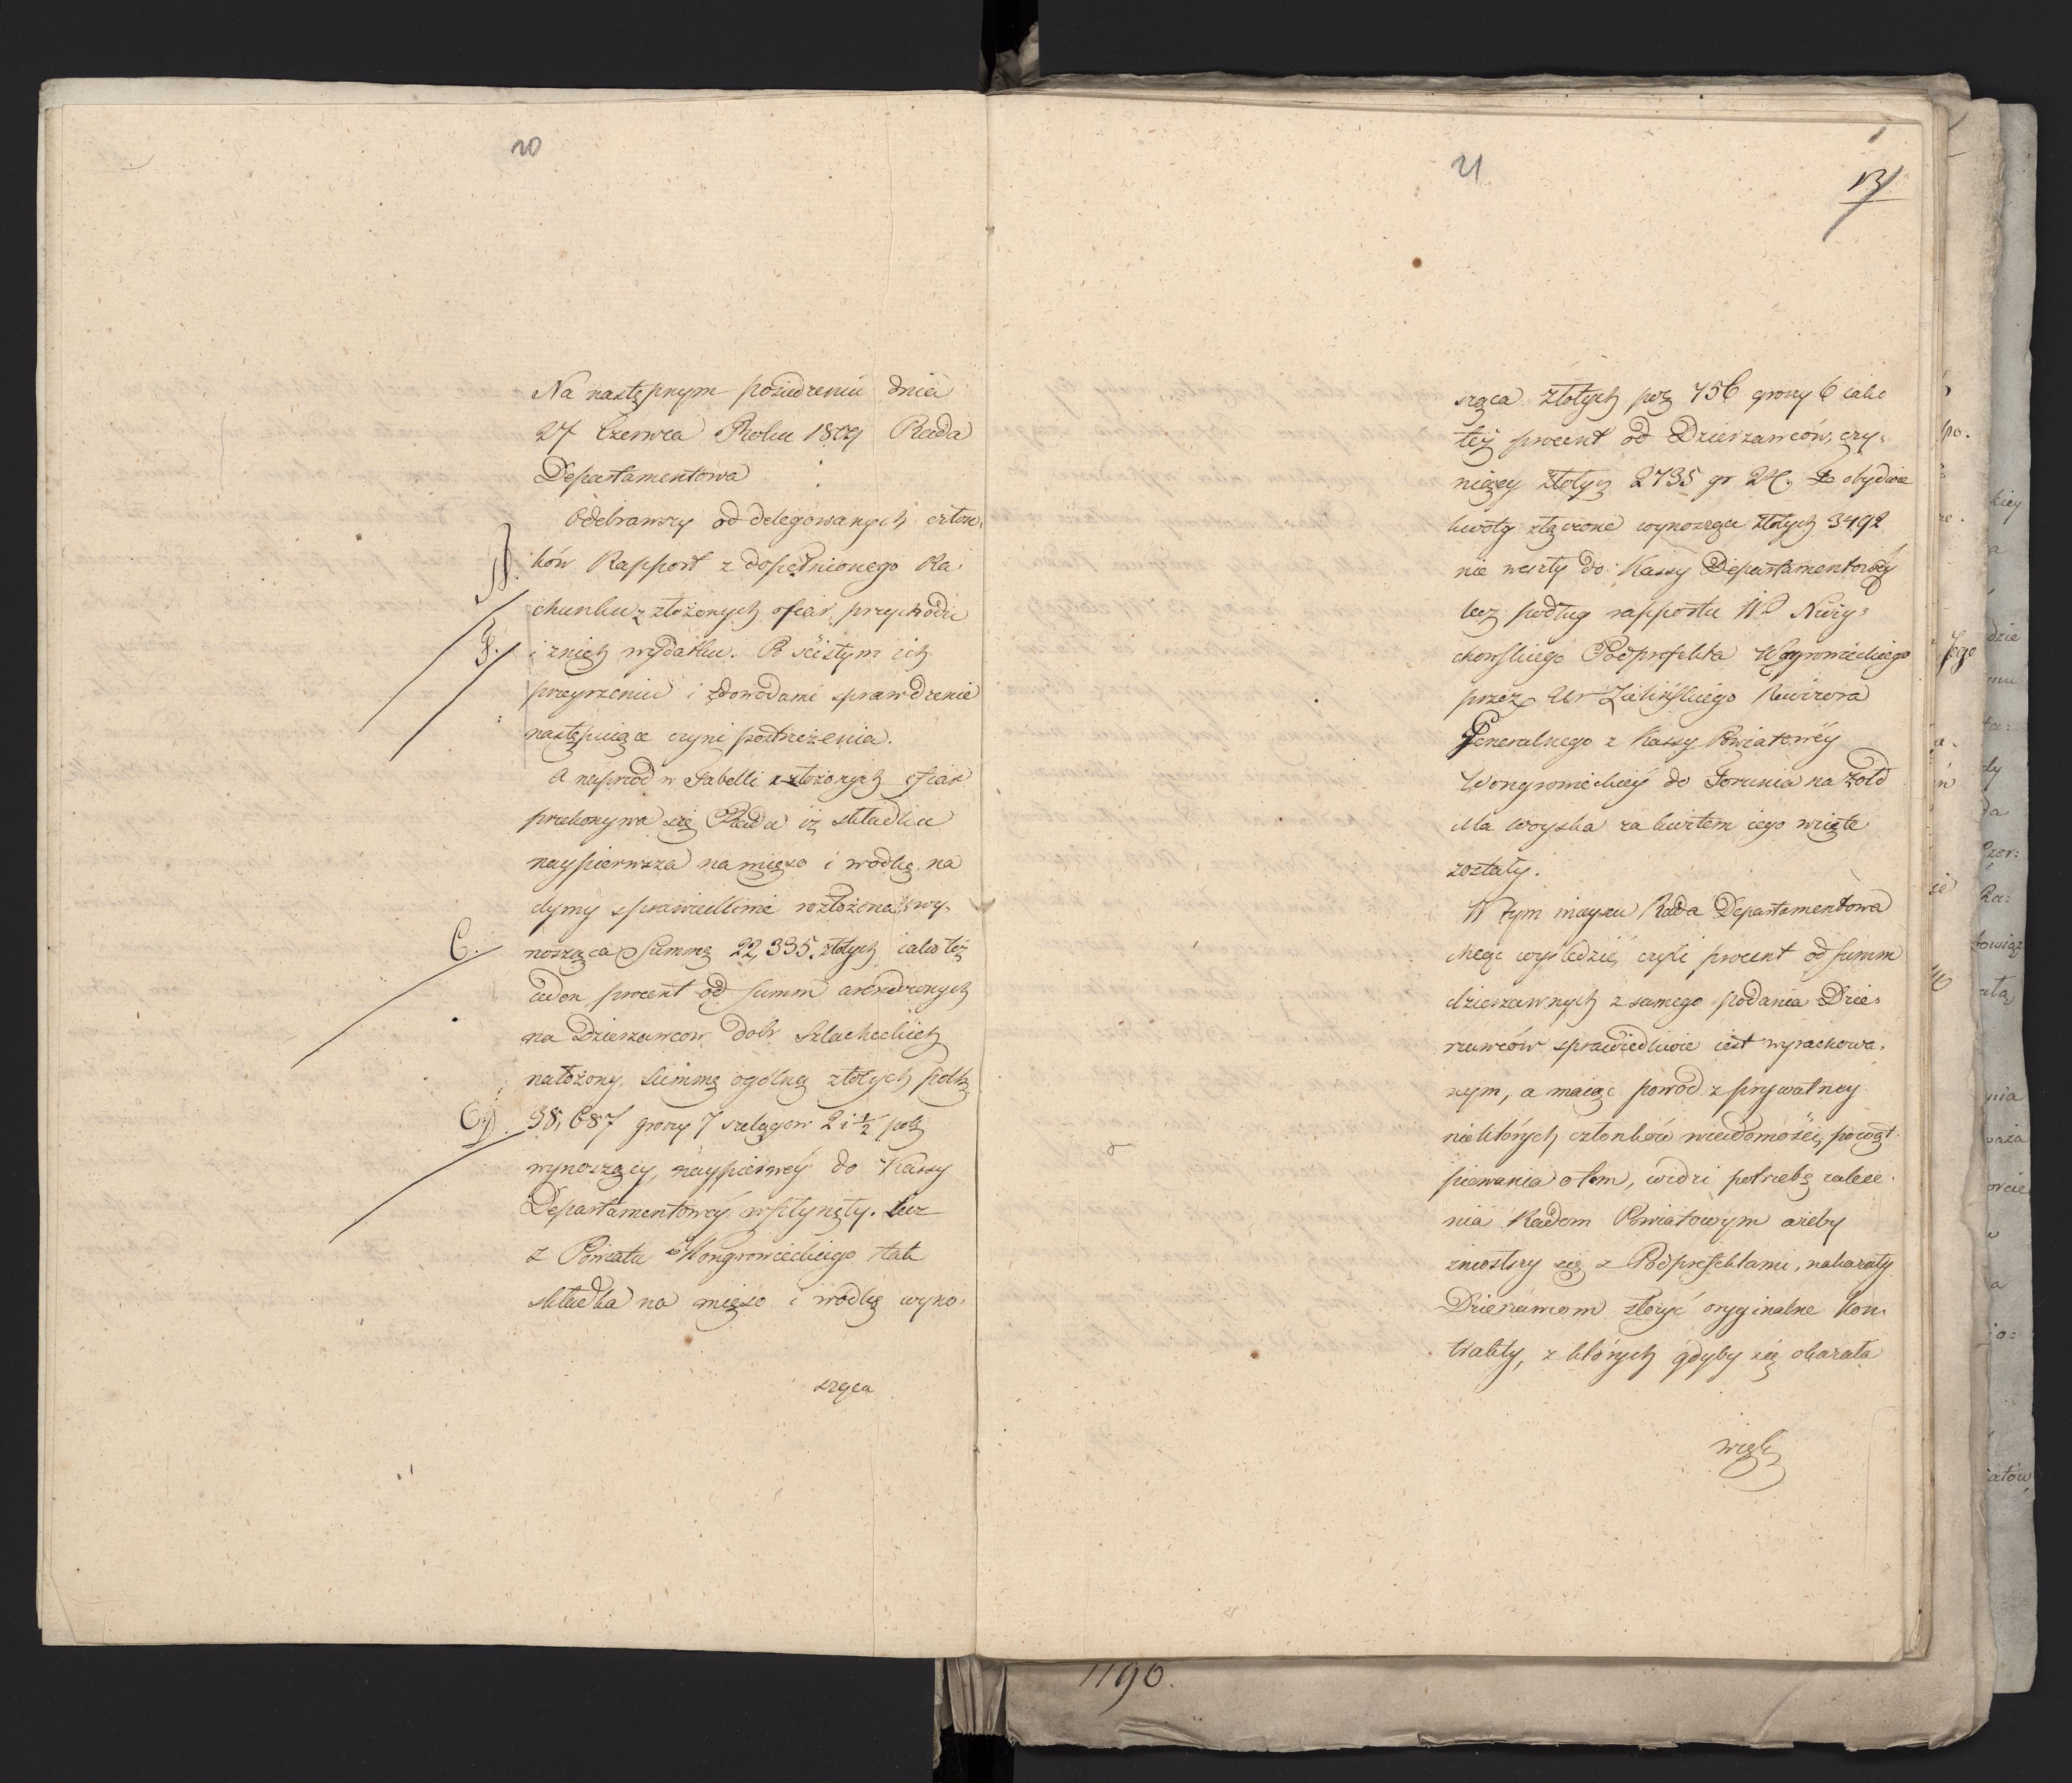 20
Na następnym posiedzeniu dnia
27 Czerwca Roku 1809 Rada
Departamentowa
Odebrawszy od delegowanych człon:
ków Rapport z dopełnionego Ra:
chunku z złożonych ofiar, przychodu
i z nich wydatku. Po ścisłym ich
przeyrzeniu i z dowodami sprawdzenie
następuiące czyni postrzeżenia.
A naprzód w Tabelli złożonych ofiar
przekonywa się Rada iż składka
naypierwsza na mięso i wodkę, na
dymy sprawiedliwie rozłożona wy:
C.
nosząca Summę 22,335. złotych iako też
ieden procent od summ arendownych
na Dzierzawcow dobr Szlacheckich
nałożony, Summę ogólną złotych polsk
38,687 groszy 7 szelągow 2 i ½ pols
wynoszący, naypierwey do Kassy
Departamentowey wpłynęły. Lecz
z Powiatu Wongrowieckiego taka
składka na mięso i wódkę wyno:
sząca
21
13
sząca złotych pols 756 groszy 6 iako
też procent od Dzierzawców, czy:
niący złotych 2735 gr 24. obydwie
kwoty złączone wynoszące złotych 3492
nie weszły do Kassy Departamentowey
lecz podług rapportu Nieży:
chowskiego Podprefekta Wągrowieckiego
przez Ur Zielińskiego Rewizora
Generalnego z Kassy Powiatowey
Wongrowieckiey do Torunia na żołd
dla Woyska za kwitem iego wzięte
zostały.
W tym mieyscu Rada Departamentowa
chcąc wyśledzić, czyli procent od summ
dzierzawnych z samego podania Dzie:
rzawców sprawiedliwie iest wyrachowa:
nym, a maiąc powód z prywatney
niektórych członków wiadomości, powąt:
piewania o tem, widzi potrzebę zalece:
nia Radom Powiatowym ażeby
zniosłszy się z Podprefektami, nakazały
Dzierzawcom złożyć oryginalne kon:
trakty, z których gdyby się okazała
więk
1190.